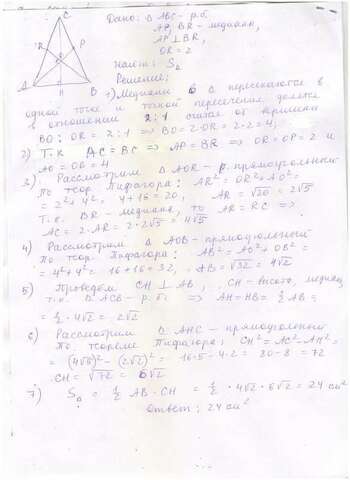 C
R
P
O
A
H
B
Дано: △ ABC – р.б.
AP, BR – медианы,
AP ⊥ BR,
OR = 2
Найти: S△
Решение:
1) Медианы в △ пересекаются в
одной точке и точкой пересечения делятся
в отношении 2:1 считая от вершины
BO : OR = 2:1 => BO = 2·OR = 2·2 = 4;
2) Т.к. AC = BC => AP = BR => OR = OP = 2 и
AO = OB = 4
3) Рассмотрим △ AOR – прямоугольный
По теор. Пифагора: AR² = OR² + AO² =
= 2² + 4² = 4 + 16 = 20, AR = √20 = 2√5
Т.к. BR – медиана, то AR = RC =>
AC = 2·AR = 2·2√5 = 4√5
4) Рассмотрим △ AOB – прямоугольный
По теор. Пифагора: AB² = AO² + OB² =
= 4² + 4² = 16 + 16 = 32, AB = √32 = 4√2
5) Проведём CH ⊥ AB, CH – высота, медиана
т.к. △ ACB – р.б. => AH = HB = ½ AB =
= ½·4√2 = 2√2
6) Рассмотрим △ AHC – прямоугольный
По теореме Пифагора: CH² = AC² – AH² =
= (4√5)² – (2√2)² = 16·5 – 4·2 = 80 – 8 = 72
CH = √72 = 6√2
7) S△ = ½ AB · CH = ½ · 4√2 · 6√2 = 24 см²
Ответ: 24 см²